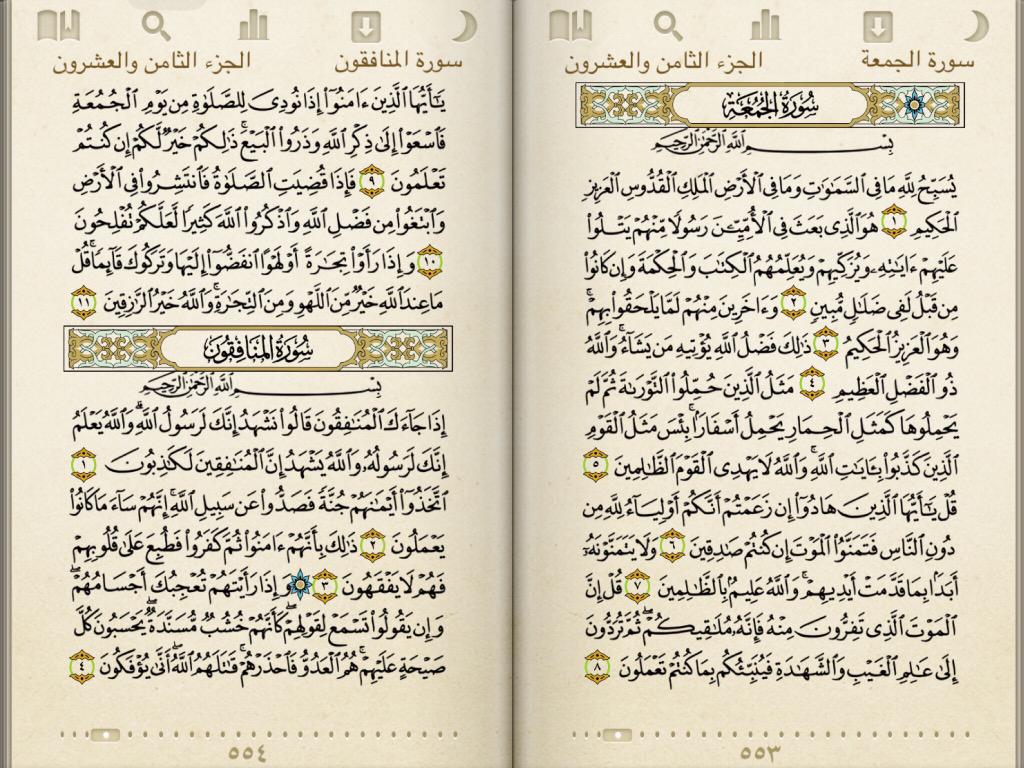 سورة الجمعة
الجزء الثامن والعشرون
سُورَةُ الْجُمُعَةِ
بِسْمِ ٱللَّهِ ٱلرَّحْمَٰنِ ٱلرَّحِيمِ
يُسَبِّحُ لِلَّهِ مَا فِى ٱلسَّمَٰوَٰتِ وَمَا فِى ٱلْأَرْضِ ٱلْمَلِكِ ٱلْقُدُّوسِ ٱلْعَزِيزِ
ٱلْحَكِيمِ ١ هُوَ ٱلَّذِى بَعَثَ فِى ٱلْأُمِّيِّـۧنَ رَسُولًا مِّنْهُمْ يَتْلُوا۟
عَلَيْهِمْ ءَايَٰتِهِۦ وَيُزَكِّيهِمْ وَيُعَلِّمُهُمُ ٱلْكِتَٰبَ وَٱلْحِكْمَةَ وَإِن كَانُوا۟
مِن قَبْلُ لَفِى ضَلَٰلٍ مُّبِينٍ ٢ وَءَاخَرِينَ مِنْهُمْ لَمَّا يَلْحَقُوا۟ بِهِمْ ۚ
وَهُوَ ٱلْعَزِيزُ ٱلْحَكِيمُ ٣ ذَٰلِكَ فَضْلُ ٱللَّهِ يُؤْتِيهِ مَن يَشَآءُ ۚ وَٱللَّهُ
ذُو ٱلْفَضْلِ ٱلْعَظِيمِ ٤ مَثَلُ ٱلَّذِينَ حُمِّلُوا۟ ٱلتَّوْرَىٰةَ ثُمَّ لَمْ
يَحْمِلُوهَا كَمَثَلِ ٱلْحِمَارِ يَحْمِلُ أَسْفَارًۢا ۚ بِئْسَ مَثَلُ ٱلْقَوْمِ
ٱلَّذِينَ كَذَّبُوا۟ بِـَٔايَٰتِ ٱللَّهِ ۚ وَٱللَّهُ لَا يَهْدِى ٱلْقَوْمَ ٱلظَّٰلِمِينَ ٥
قُلْ يَٰٓأَيُّهَا ٱلَّذِينَ هَادُوٓا۟ إِن زَعَمْتُمْ أَنَّكُمْ أَوْلِيَآءُ لِلَّهِ مِن
دُونِ ٱلنَّاسِ فَتَمَنَّوُا۟ ٱلْمَوْتَ إِن كُنتُمْ صَٰدِقِينَ ٦ وَلَا يَتَمَنَّوْنَهُۥٓ
أَبَدًۢا بِمَا قَدَّمَتْ أَيْدِيهِمْ ۚ وَٱللَّهُ عَلِيمٌۢ بِٱلظَّٰلِمِينَ ٧ قُلْ إِنَّ
ٱلْمَوْتَ ٱلَّذِى تَفِرُّونَ مِنْهُ فَإِنَّهُۥ مُلَٰقِيكُمْ ۖ ثُمَّ تُرَدُّونَ
إِلَىٰ عَٰلِمِ ٱلْغَيْبِ وَٱلشَّهَٰدَةِ فَيُنَبِّئُكُم بِمَا كُنتُمْ تَعْمَلُونَ ٨
٥٥٣
سورة المنافقون
الجزء الثامن والعشرون
يَٰٓأَيُّهَا ٱلَّذِينَ ءَامَنُوٓا۟ إِذَا نُودِىَ لِلصَّلَوٰةِ مِن يَوْمِ ٱلْجُمُعَةِ
فَٱسْعَوْا۟ إِلَىٰ ذِكْرِ ٱللَّهِ وَذَرُوا۟ ٱلْبَيْعَ ۚ ذَٰلِكُمْ خَيْرٌ لَّكُمْ إِن كُنتُمْ
تَعْلَمُونَ ٩ فَإِذَا قُضِيَتِ ٱلصَّلَوٰةُ فَٱنتَشِرُوا۟ فِى ٱلْأَرْضِ
وَٱبْتَغُوا۟ مِن فَضْلِ ٱللَّهِ وَٱذْكُرُوا۟ ٱللَّهَ كَثِيرًا لَّعَلَّكُمْ تُفْلِحُونَ
١٠ وَإِذَا رَأَوْا۟ تِجَٰرَةً أَوْ لَهْوًا ٱنفَضُّوٓا۟ إِلَيْهَا وَتَرَكُوكَ قَآئِمًا ۚ قُلْ
مَا عِندَ ٱللَّهِ خَيْرٌ مِّنَ ٱللَّهْوِ وَمِنَ ٱلتِّجَٰرَةِ ۚ وَٱللَّهُ خَيْرُ ٱلرَّٰزِقِينَ ١١
سُورَةُ الْمُنَافِقُونَ
بِسْمِ ٱللَّهِ ٱلرَّحْمَٰنِ ٱلرَّحِيمِ
إِذَا جَآءَكَ ٱلْمُنَٰفِقُونَ قَالُوا۟ نَشْهَدُ إِنَّكَ لَرَسُولُ ٱللَّهِ ۗ وَٱللَّهُ يَعْلَمُ
إِنَّكَ لَرَسُولُهُۥ وَٱللَّهُ يَشْهَدُ إِنَّ ٱلْمُنَٰفِقِينَ لَكَٰذِبُونَ ١
ٱتَّخَذُوٓا۟ أَيْمَٰنَهُمْ جُنَّةً فَصَدُّوا۟ عَن سَبِيلِ ٱللَّهِ ۚ إِنَّهُمْ سَآءَ مَا كَانُوا۟
يَعْمَلُونَ ٢ ذَٰلِكَ بِأَنَّهُمْ ءَامَنُوا۟ ثُمَّ كَفَرُوا۟ فَطُبِعَ عَلَىٰ قُلُوبِهِمْ
فَهُمْ لَا يَفْقَهُونَ ٣ وَإِذَا رَأَيْتَهُمْ تُعْجِبُكَ أَجْسَامُهُمْ ۖ
وَإِن يَقُولُوا۟ تَسْمَعْ لِقَوْلِهِمْ ۖ كَأَنَّهُمْ خُشُبٌ مُّسَنَّدَةٌ ۖ يَحْسَبُونَ كُلَّ
صَيْحَةٍ عَلَيْهِمْ ۚ هُمُ ٱلْعَدُوُّ فَٱحْذَرْهُمْ ۚ قَٰتَلَهُمُ ٱللَّهُ ۖ أَنَّىٰ يُؤْفَكُونَ ٤
٥٥٤